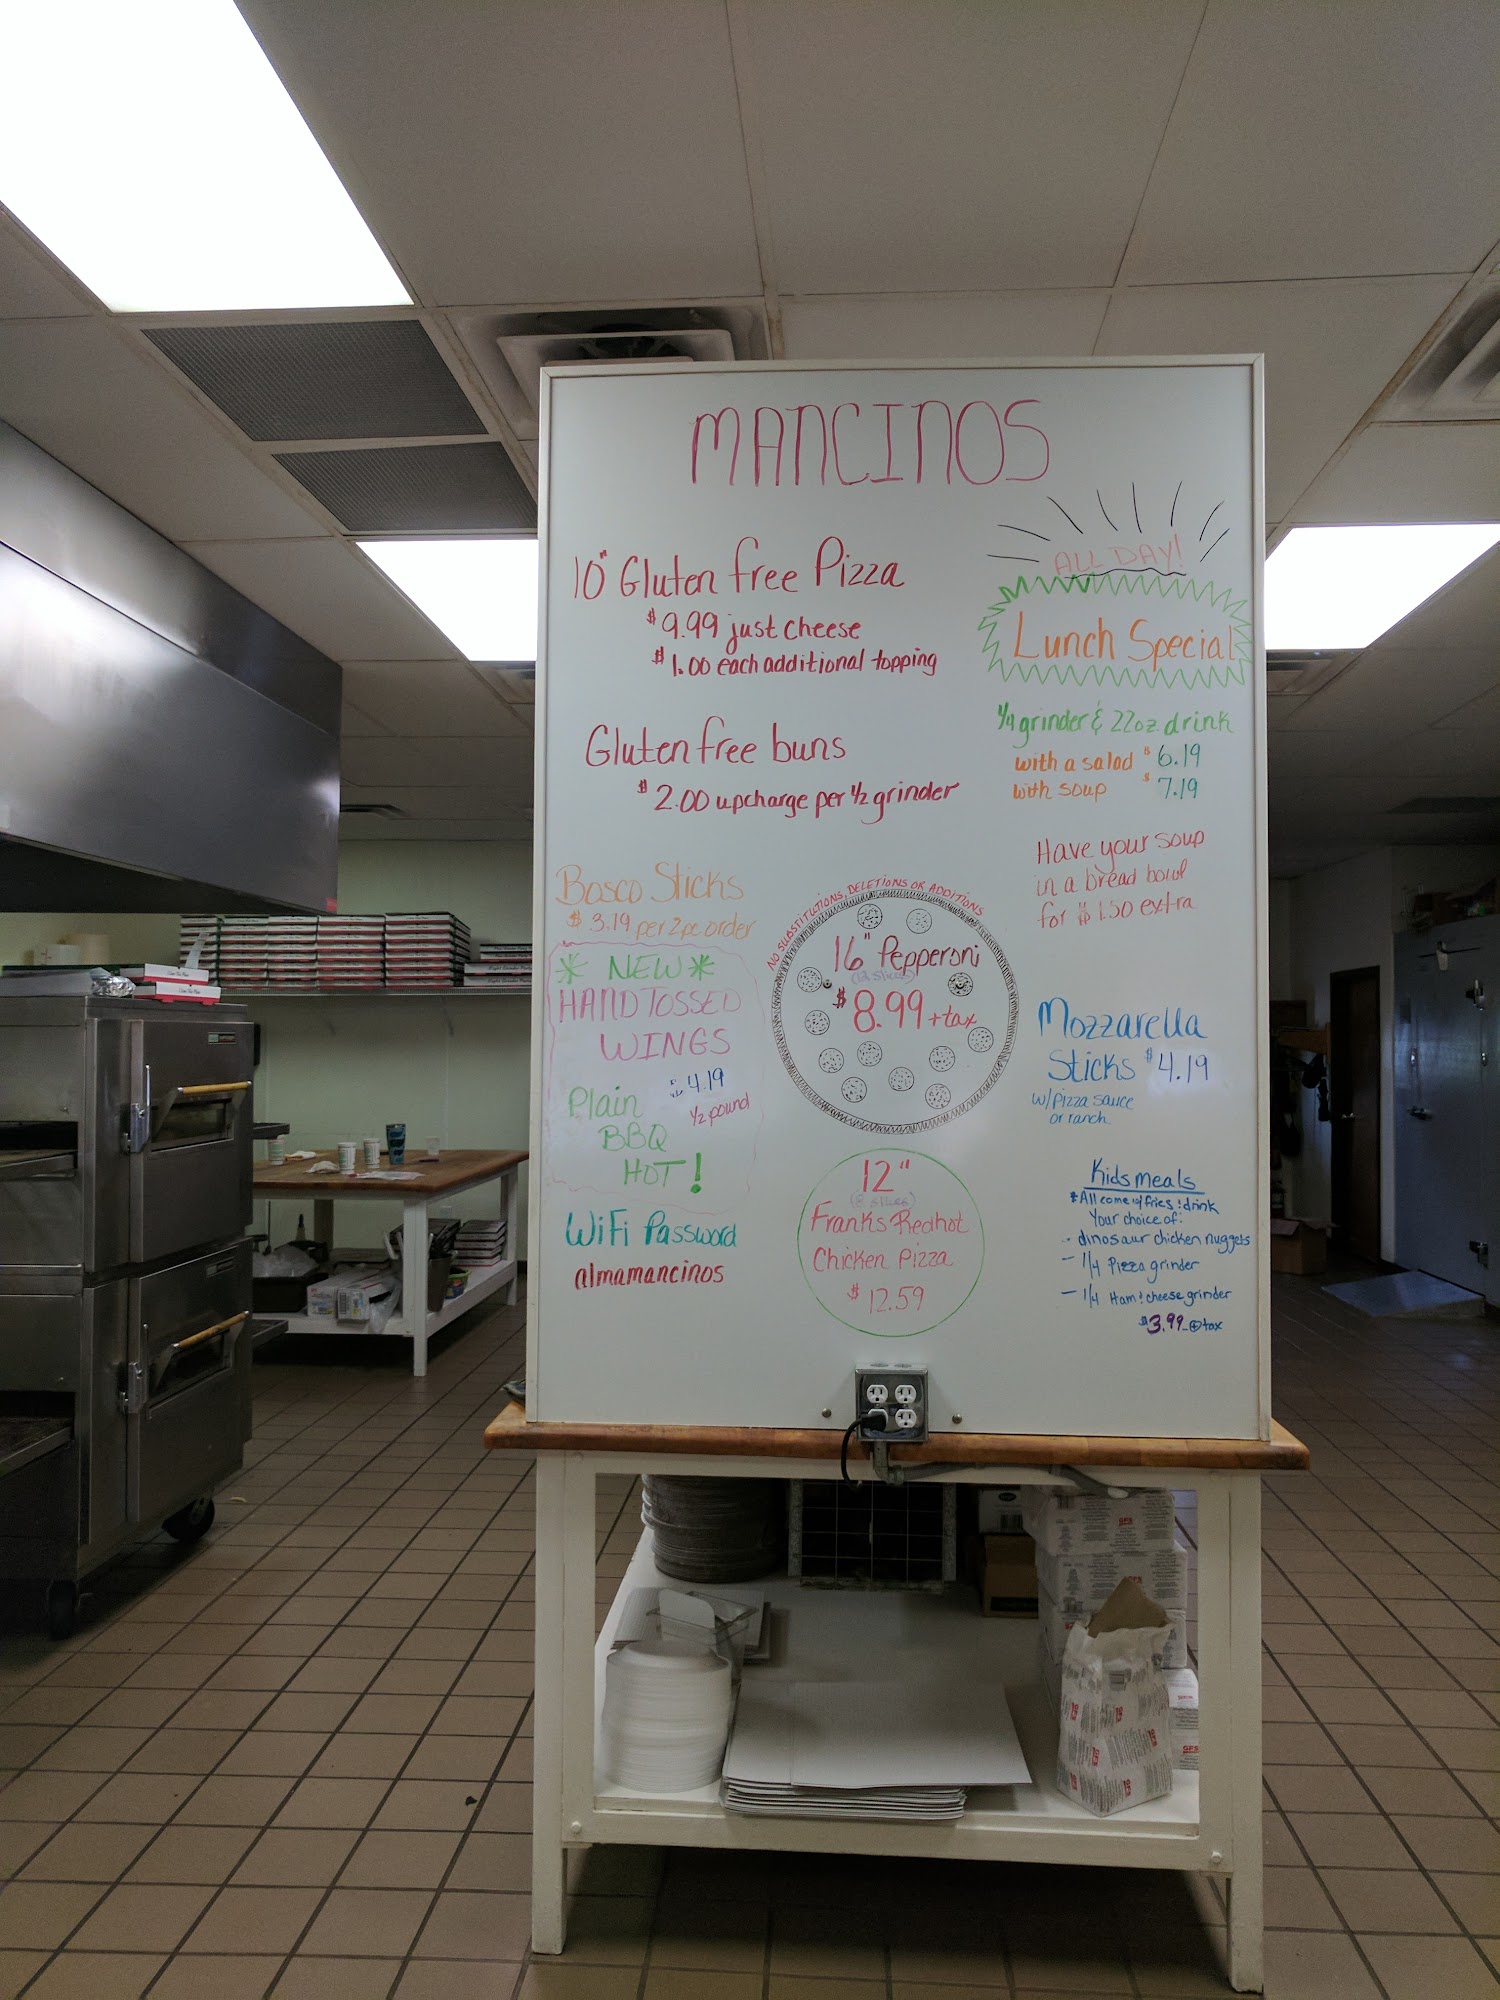 MANCINOS
10" Gluten free Pizza
$9.99 just cheese
$1.00 each additional topping
Gluten free buns
$2.00 upcharge per 1/2 grinder
ALL DAY!
Lunch Special
1/4 grinder & 22oz. drink
with a salad $6.19
with soup $7.19
Have your soup
in a bread bowl
for $1.50 extra
Bosco Sticks
$3.19 per 2pc order
* NEW *
HAND TOSSED
WINGS
$4.19
1/2 pound
Plain
BBQ
HOT!
WiFi Password
almamancinos
NO SUBSTITUTIONS, DELETIONS OR ADDITIONS
16" Pepperoni
(12 slices)
$8.99 + tax
12"
(8 slices)
Franks Redhot
Chicken Pizza
$12.59
Mozzarella
Sticks $4.19
w/Pizza sauce
or ranch
Kids meals
*All come w/ fries & drink
Your choice of:
- dinosaur chicken nuggets
- 1/4 Pizza grinder
- 1/4 Ham & cheese grinder
$3.99 + tax
GFS
GFS